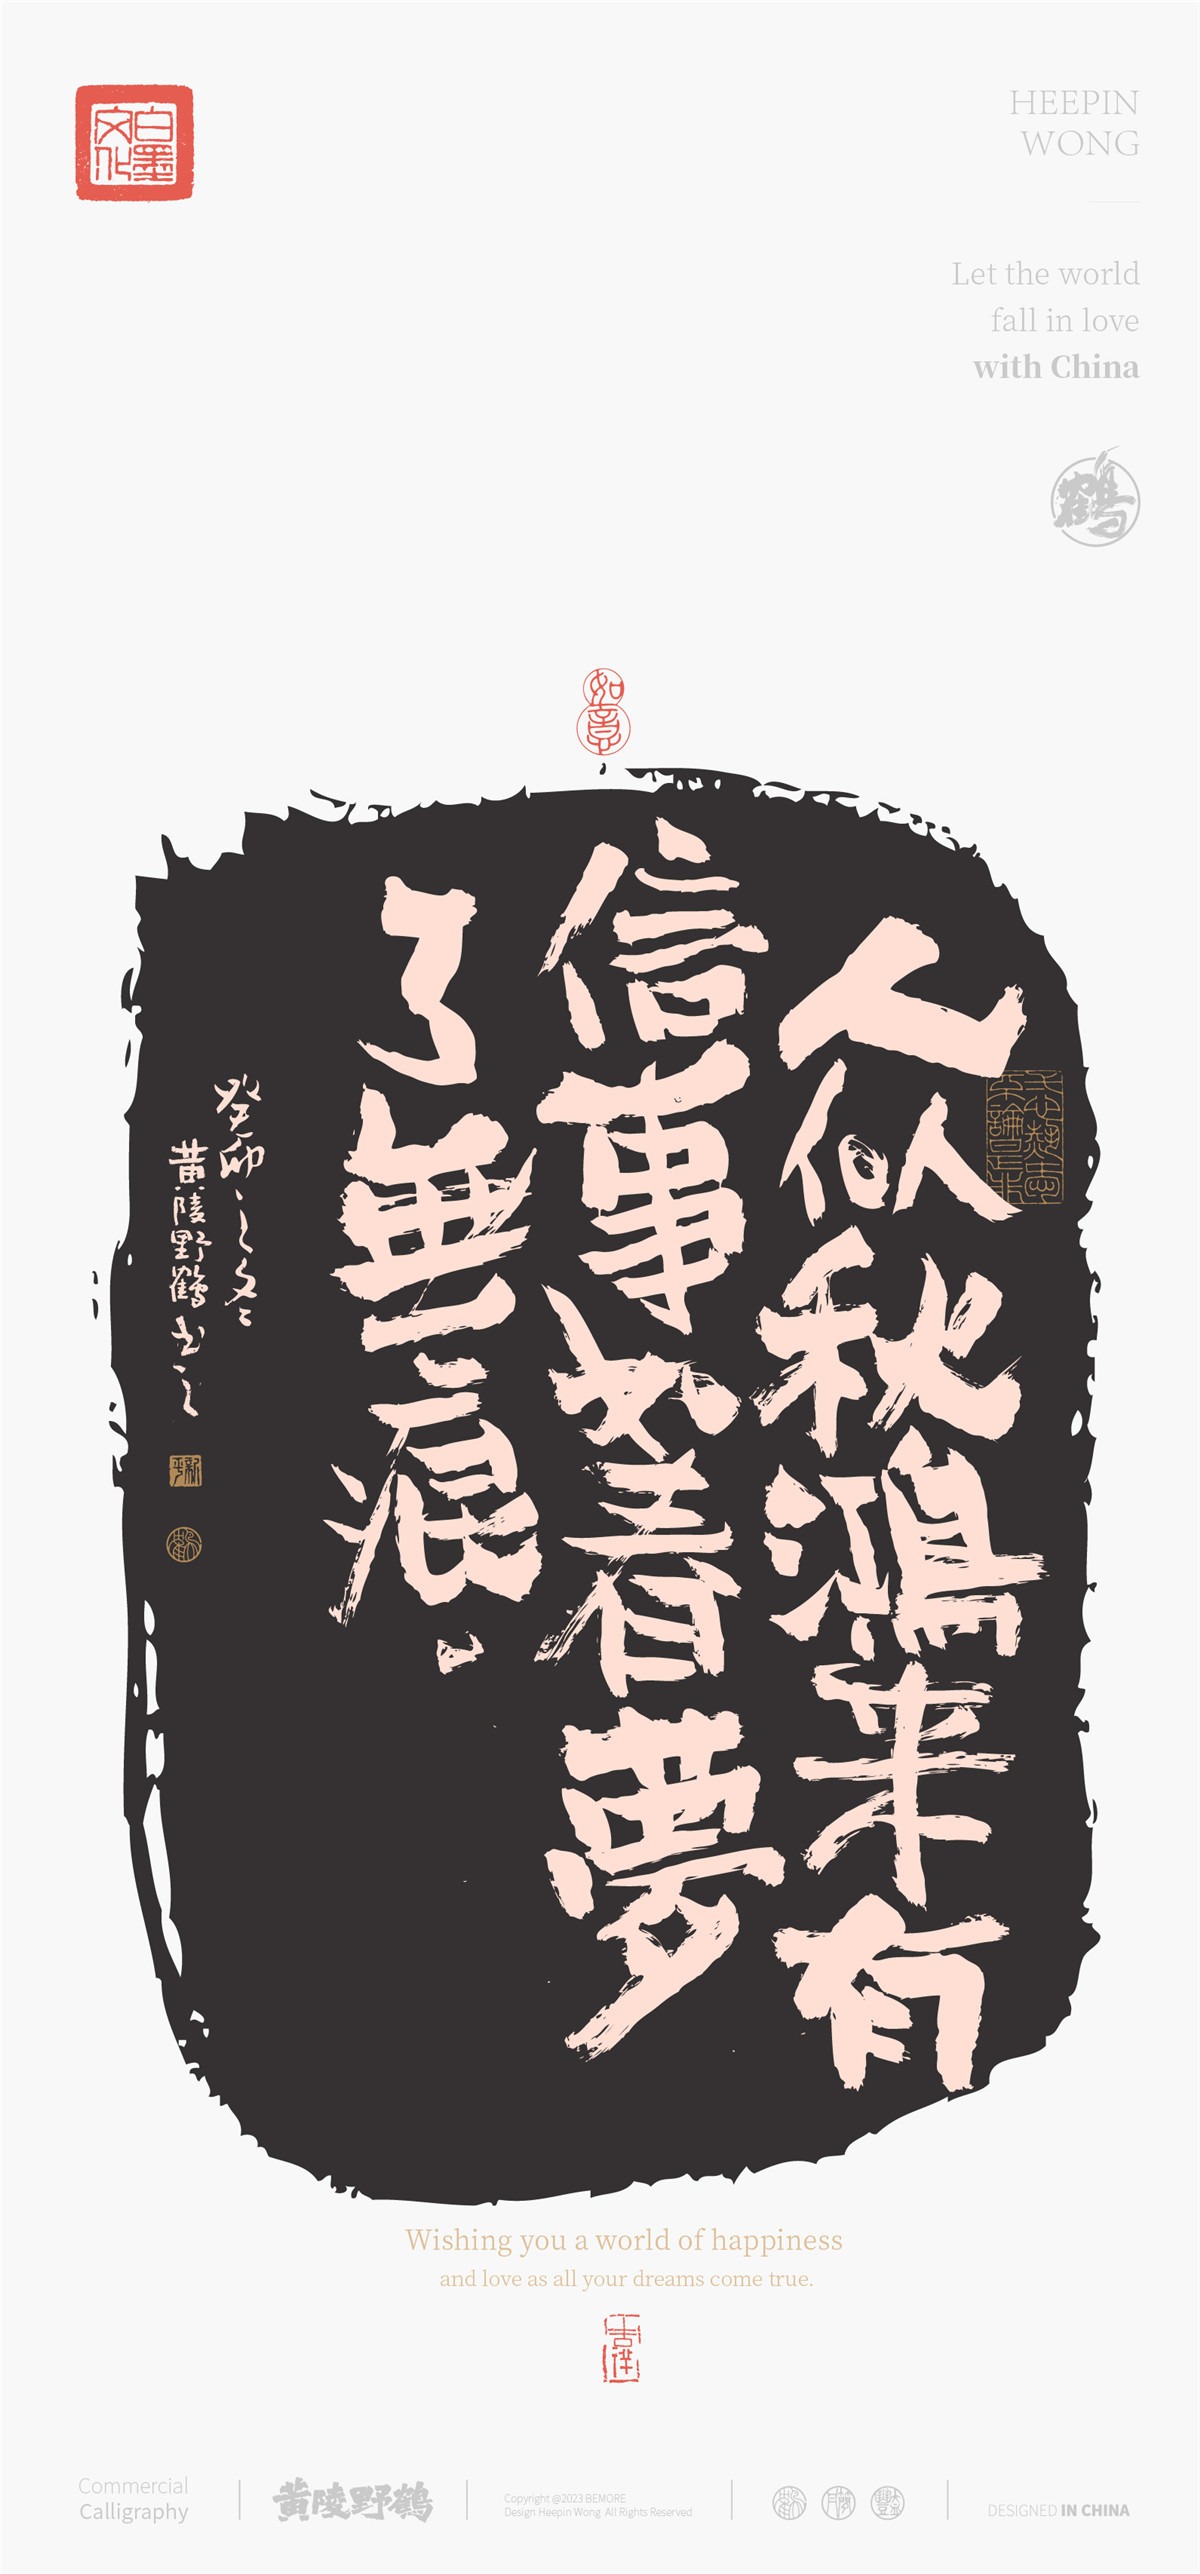 白墨文化
HEEPIN
WONG
Let the world
fall in love
with China
鶴
如意
人似秋鴻来有
信事如春夢
了無痕
癸卯之冬
黄陵野鶴书之
Wishing you a world of happiness
and love as all your dreams come true.
吉祥
Commercial
Calligraphy
黄陵野鶴
Copyright @2023 BEMORE
Design Heepin Wong All Rights Reserved
DESIGNED IN CHINA